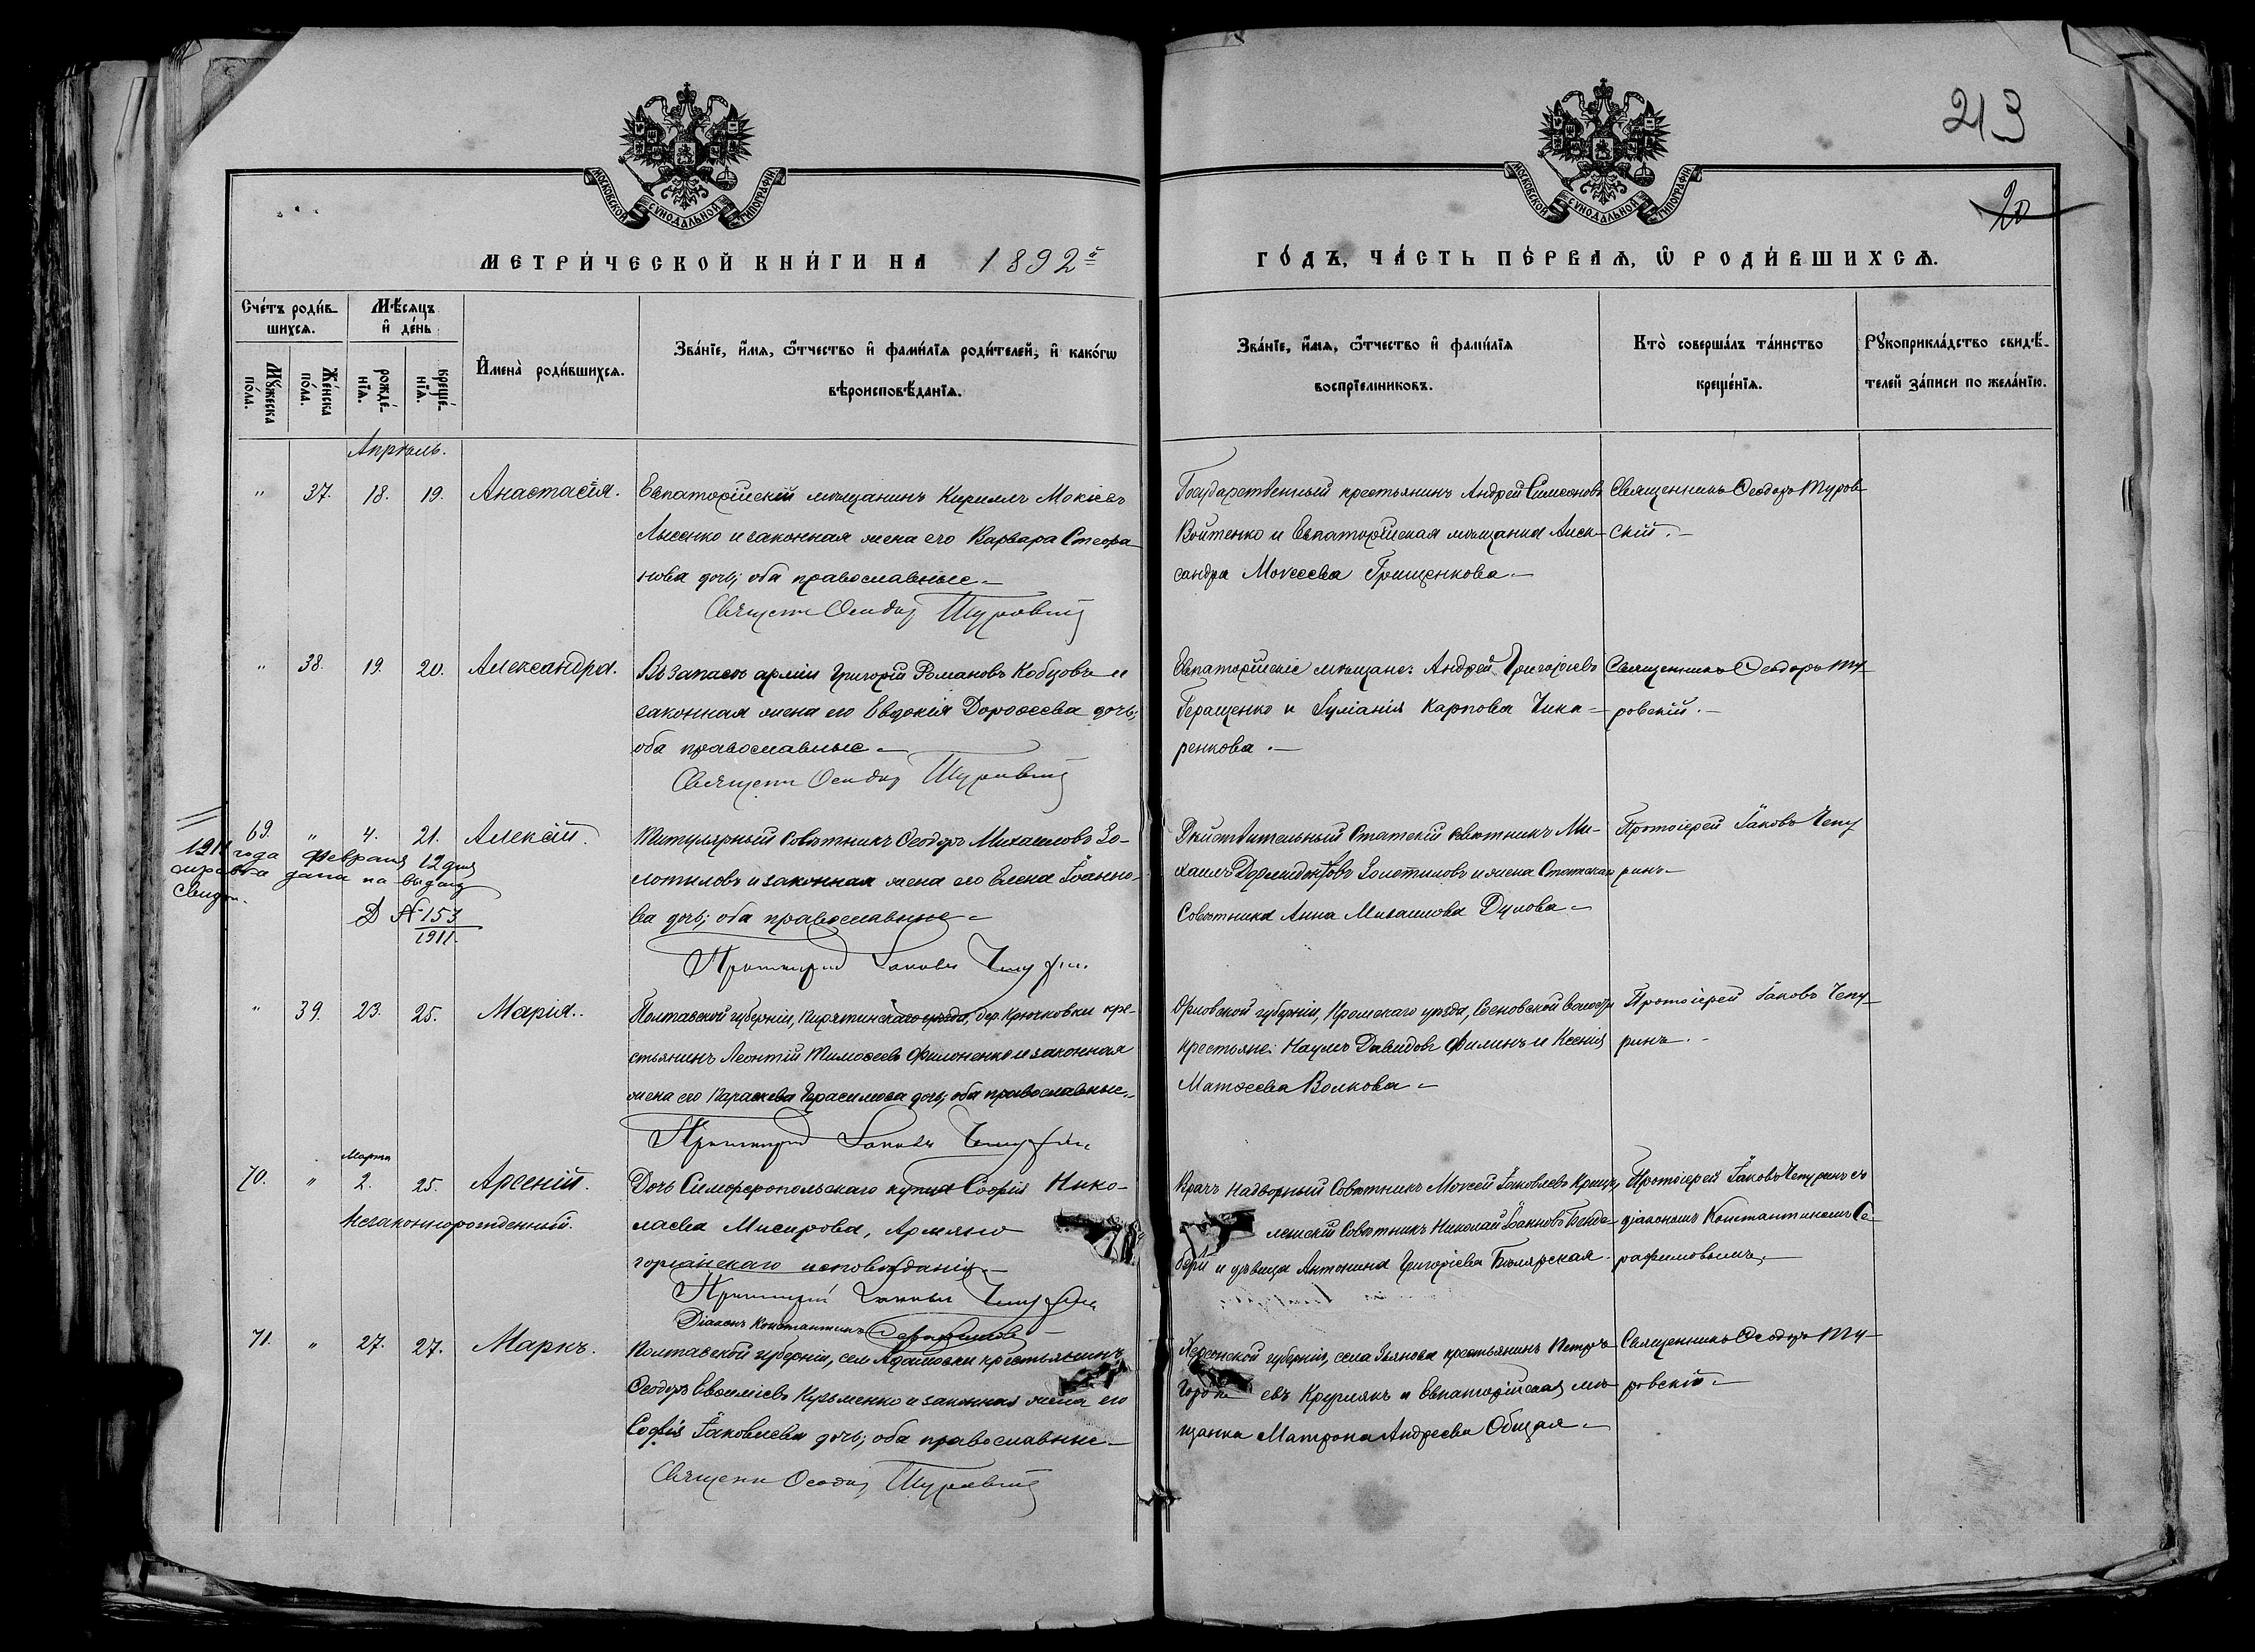 213
20
МОСКОВСКОЙ СУНОДАЛЬНОЙ ТИПОГРАФІИ
МОСКОВСКОЙ СУНОДАЛЬНОЙ ТИПОГРАФІИ
МЕТРИ́ЧЕСКОЙ КНИ́ГИ НА 1892й
ГО́ДЪ, ЧА́СТЬ ПЕ́РВАѦ, Ѡ РОДИ́ВШИХСѦ.
Сче́тъ роди́вшихсѧ.
Мѣ́сѧцъ и҆ де́нь
Мꙋ́жеска по́ла.
Же́нска по́ла.
рожде́нїѧ.
креще́нїѧ.
И҆мена̀ роди́вшихсѧ.
Зва́нїе, и҆́мѧ, ѻ҆́тчество и҆ фами́лїѧ роди́телей, и҆ како́гѡ
вѣроисповѣ́данїѧ.
Зва́нїе, и҆́мѧ, ѻ҆́тчество и҆ фами́лїѧ
воспрїе́мниковъ.
Кто̀ соверша́лъ та́инство
креще́нїѧ.
Рꙋкоприкла́дство свидѣ́-
телей за́писи по жела́нїю.
Апрѣль.
" 37. 18. 19. Анастасія.
Евпаторійскій мѣщанинъ Кириллъ Мокіевъ
Лысенко и законная жена его Варвара Стефа-
нова дочь; оба православные.
Священ Ѳеодор Туровскій
Государственный крестьянинъ Андрей Симеоновъ
Войтенко и Евпаторійская мѣщанка Алек-
сандра Мокеева Грищенкова.
Священникъ Ѳеодоръ Туров-
скій.
" 38. 19. 20. Александра.
Въ запасѣ арміи Григорій Романовъ Кобцовъ и
законная жена его Евдокія Дороѳеева дочь;
оба православные.
Священ Ѳеодор Туровскій
Евпаторійскіе мѣщане: Андрей Григорьевъ
Геращенко и Іуліанія Карпова Чика-
ренкова.
Священникъ Ѳеодоръ Ту-
ровскій.
69. " 4. 21. Алексій.
1911 года Февраля 12 дня
справка дана на выдачу
Свидѣт.
Д № 153
1911.
Титулярный Совѣтникъ Ѳеодоръ Михаиловъ Зо-
лотиловъ и законная жена его Елена Іоанно-
ва дочь; оба православные.
Протоіерей Іаковъ Чепурин
Дѣйствительный Статскій Совѣтникъ Ми-
хаилъ Дормидонтовъ Золотиловъ и жена Статскаго
Совѣтника Анна Михаилова Дулова.
Протоіерей Іаковъ Чепу-
ринъ.
" 39. 23. 25. Марія.
Полтавской губерніи, Пирятинскаго уѣзда, дер. Крючковки кре-
стьянинъ Леонтій Тимоѳеевъ Филоненко и законная
жена его Параскева Герасимова дочь; оба православные.
Протоіерей Іаковъ Чепурин
Орловской губерніи, Кромскаго уѣзда, Сосновской волости
крестьяне: Наумъ Давидовъ Филинъ и Ксенія
Матѳеева Волкова.
Протоіерей Іаковъ Чепу-
ринъ.
Марта
70. " 2. 25. Арсеній.
Незаконнорожденный.
Дочь Симферопольскаго купца Софія Нико-
лаева Мисирова, Армяно
горіанскаго исповѣданія.
Протоіерей Іаковъ Чепурин
Діаконъ Константинъ Серафимовъ
Врачъ Надворный Совѣтникъ Моисей Іаковлевъ Кранцъ,
лежскій Совѣтникъ Николай Іоанновъ Бенде-
бери и дѣвица Антонина Григоріева Бѣлярская.
Протоіерей Іаковъ Чепуринъ съ
діакономъ Константиномъ Се-
рафимовымъ.
71. " 27. 27. Маркъ.
Полтавской губерніи, села Адамовки крестьянинъ
Ѳеодоръ Евѳиміевъ Кузьменко и законная жена его
Софія Іаковлева дочь; оба православные.
Священ Ѳеодор Туровскій
Херсонской губерніи, села крестьянинъ Петръ
евъ Круглякъ и Евпаторійская мѣ-
щанка Матрона Андреева Общая.
Священникъ Ѳеодоръ Ту-
ровскій.